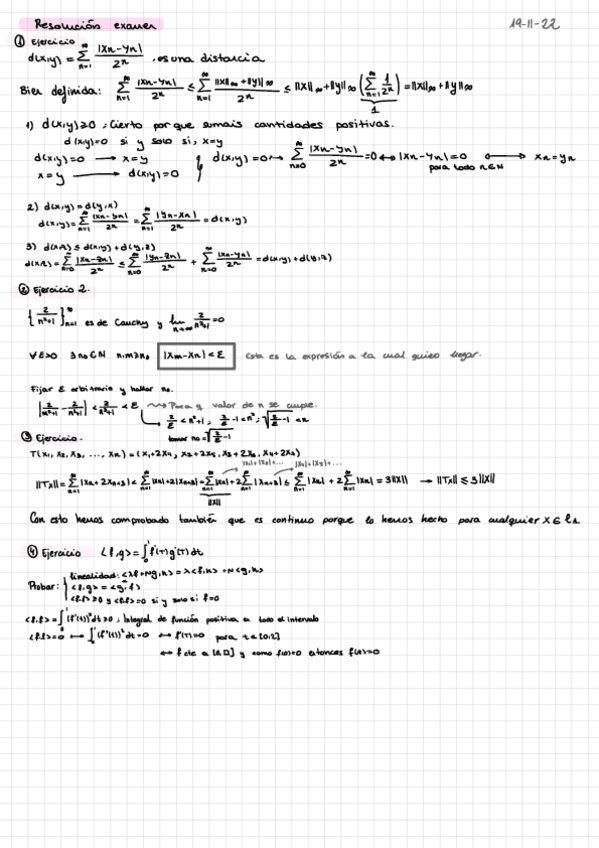 Resolución examen 19-11-22
① Ejercicio
d(x,y) = ∑_{n=1}^{∞} |xn-yn| / 2^n , es una distancia
Bien definida: ∑_{n=1}^{∞} |xn-yn| / 2^n ≤ ∑_{n=1}^{∞} ||x||∞ + ||y||∞ / 2^n ≤ ||x||∞ + ||y||∞ (∑_{n=1}^{∞} 1/2^n) = ||x||∞ + ||y||∞
1
1) d(x,y)≥0 ; Cierto porque sumais cantidades positivas.
d(x,y)=0 si y solo si, x=y
d(x,y)=0 → x=y d(x,y)=0 ↔ ∑_{n=0}^{∞} |xn-yn| / 2^n = 0 ↔ |xn-yn|=0 ↔ xn=yn
x=y → d(x,y)=0 para todo n∈N
2) d(x,y)=d(y,x)
d(x,y)= ∑_{n=1}^{∞} |xn-yn| / 2^n = ∑_{n=1}^{∞} |yn-xn| / 2^n = d(x,y)
3) d(x,z) ≤ d(x,y)+d(y,z)
d(x,z)= ∑_{n=0}^{∞} |xn-zn| / 2^n ≤ ∑_{n=0}^{∞} |yn-zn| / 2^n + ∑_{n=0}^{∞} |xn-yn| / 2^n = d(x,y)+d(y,z)
② Ejercicio 2.
{2/(n²+1)}_{n=1}^{∞} es de Cauchy y lim_{n→∞} 2/(n²+1) = 0
∀ε>0 ∃n₀∈N n,m≥n₀ |xm-xn|<ε Esta es la expresión a la cual quiero llegar.
Fijar ε arbitrario y hallar n₀.
|2/(m²+1) - 2/(n²+1)| < 2/(n²+1) < ε → Para q valor de n se cumple.
2/ε < n²+1 ; 2/ε -1 < n² ; √(2/ε -1) < n
tomar n₀=√(2/ε -1)
③ Ejercicio.
T(x₁, x₂, x₃, ..., xn) = (x₁+2x₄, x₂+2x₅, x₃+2x₆, x₄+2x₇)
|x₄|+|x₅|+... |x₁|+|x₂|+...
||Tx|| = ∑_{n=1}^{∞} |xn+2xn+3| < ∑_{n=1}^{∞} |xn|+2|xn+3| = ∑_{n=1}^{∞} |xn| + 2∑_{n=1}^{∞} |xn+3| ≤ ∑_{n=1}^{∞} |xn| + 2∑_{n=1}^{∞} |xn| = 3||x|| → ||Tx|| ≤ 3||x||
||x||
Con esto hemos comprobado también que es continuo porque lo hemos hecho para cualquier x∈l₁
④ Ejercicio <f,g> = ∫₀¹ f'(t)g'(t)dt
Probar: linealidad: <λf+Ng,h> = λ<f,h> + N<g,h>
<f,g> = <g,f>
<f,f>≥0 y <f,f>=0 si y solo si f=0
<f,f> = ∫₀¹ (f'(t))²dt ≥0 , Integral de función positiva en todo el intervalo
<f,f>=0 ↔ ∫₀¹ (f'(t))²dt=0 ↔ f'(t)=0 para t∈[0,1]
↔ f cte en [0,1] y como f(0)=0 entonces f(x)=0